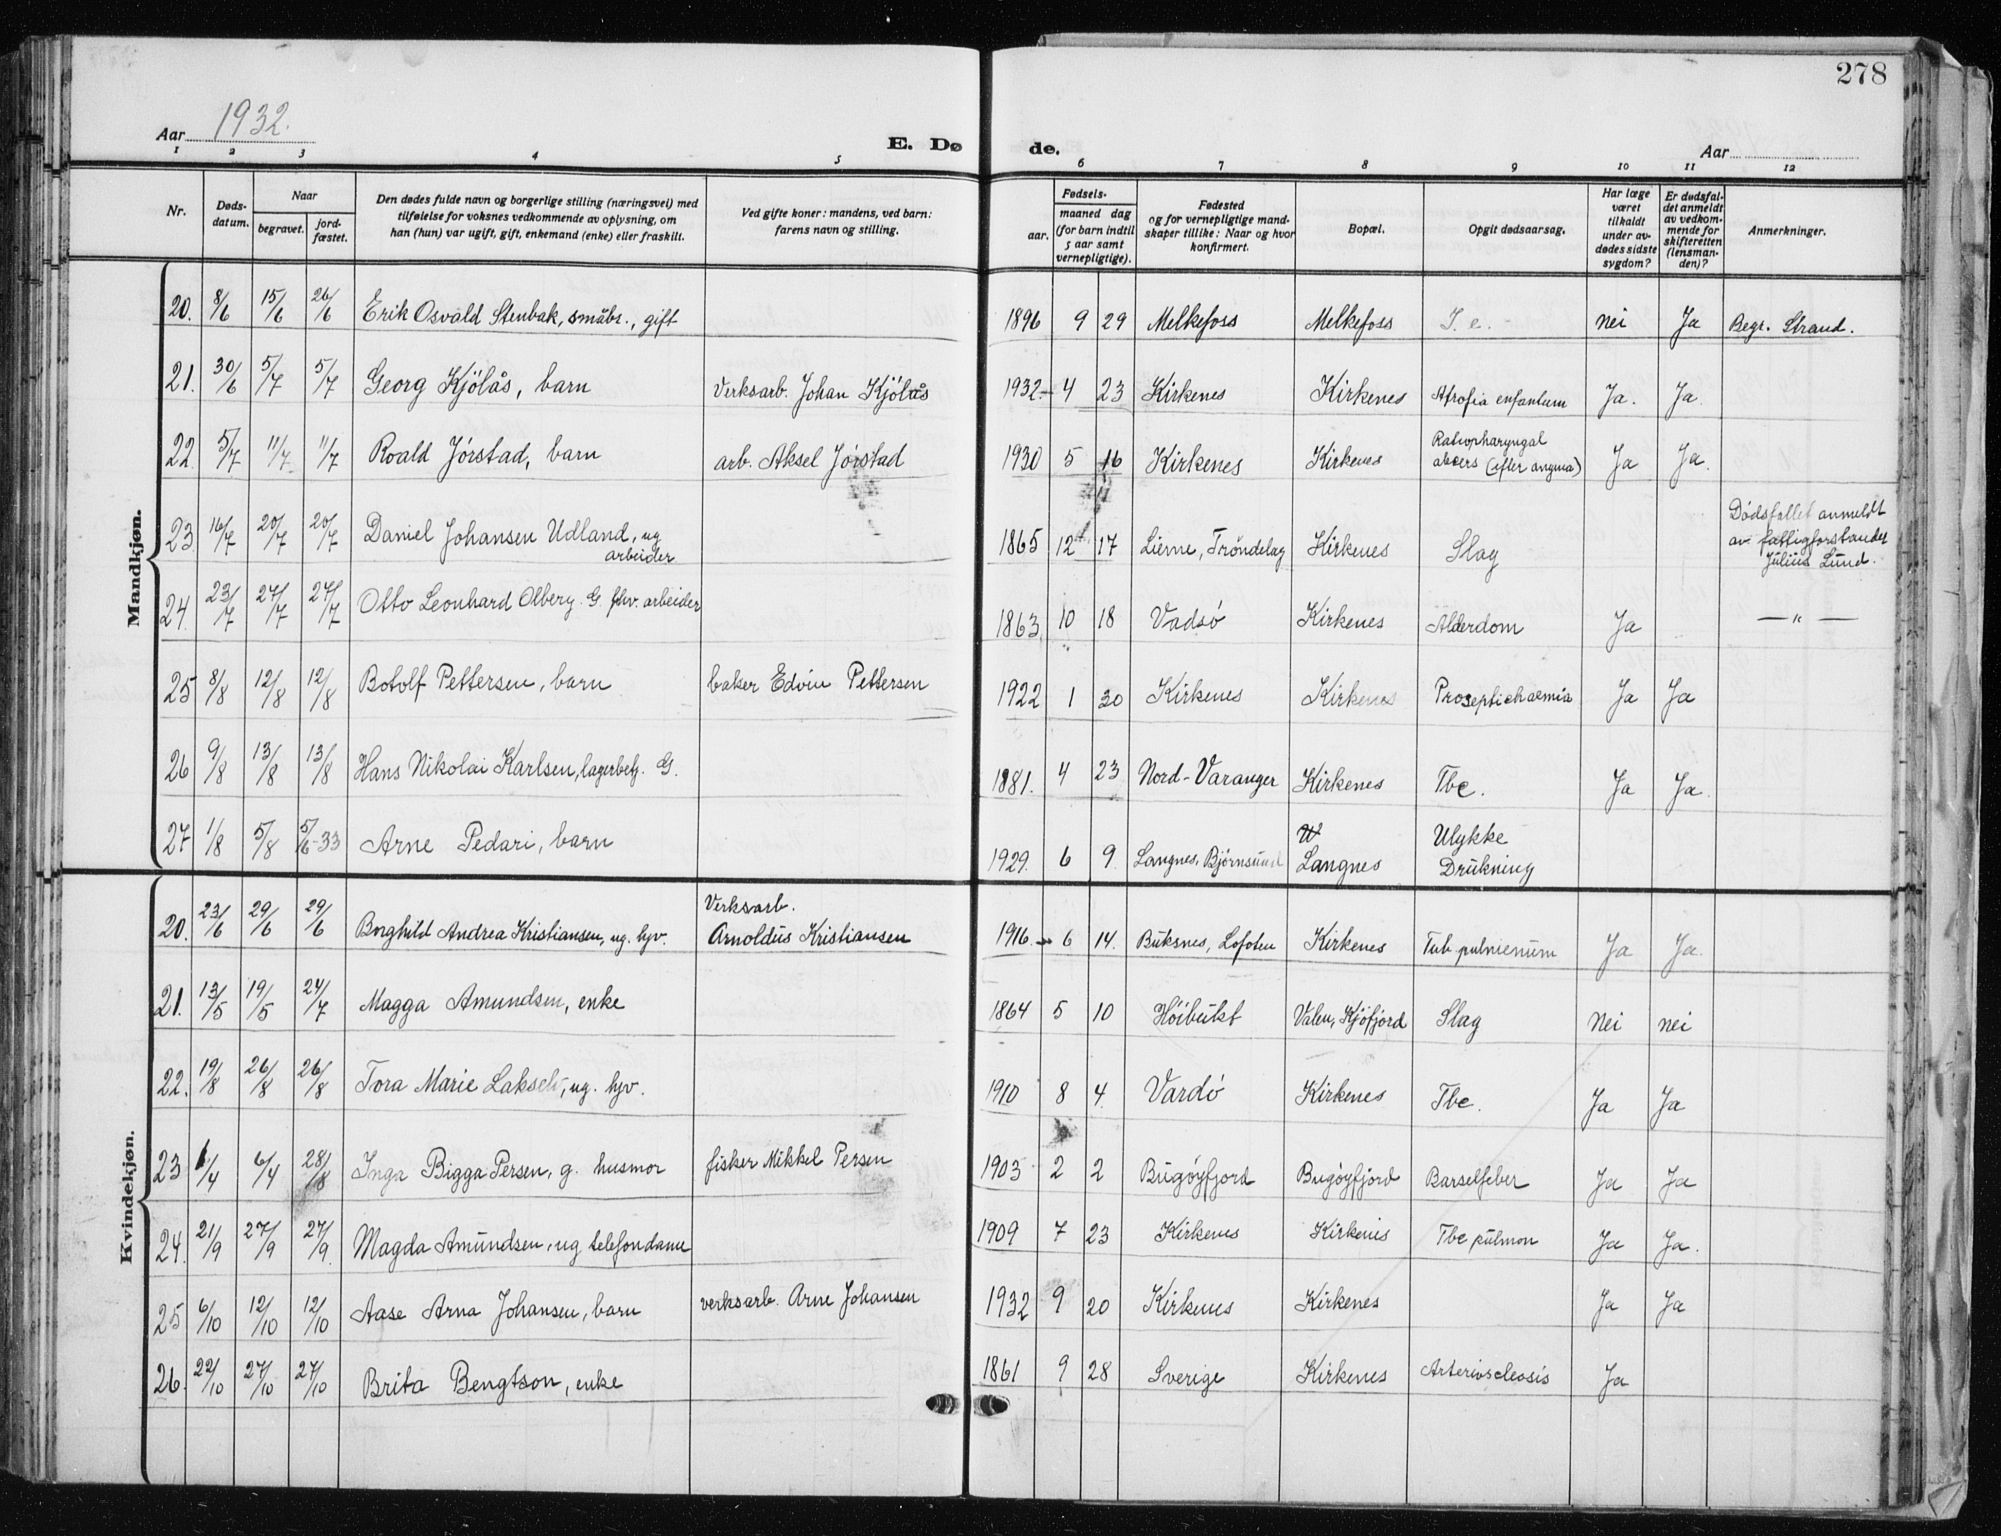 278
Aar 1932.
E. Dø de.
Aar
1 2 3 4 5 6 7 8 9 10 11 12
Nr. | Døds-datum. | Naar begravet. | jord-fæstet. | Den dødes fulde navn og borgerlige stilling (næringsvei) med tilføielse for voksnes vedkommende av oplysning, om han (hun) var ugift, gift, enkemand (enke) eller fraskilt. | Ved gifte koner: mandens, ved barn: farens navn og stilling. | Fødsels- aar. | maaned dag (for barn indtil 5 aar samt vernepligtige). | Fødested og for vernepligtige mandskaper tillike: Naar og hvor konfirmert. | Bopæl. | Opgit dødsaarsag. | Har læge været tilkaldt under avdødes sidste sygdom? | Er dødsfaldet anmeldt av vedkommende for skifteretten (lensmanden)? | Anmerkninger.
Mandkjøn.
20. 8/6 15/6 26/6 Erik Osvald Stenbak, småbr., gift 1896 9 29 Melkefoss Melkefoss nei Ja Begr. Strand.
21. 30/6 5/7 5/7 Georg Kjölås, barn Verksarb. Johan Kjölås 1932 4 23 Kirkenes Kirkenes Atrofia enfantum Ja. Ja
22 5/7 11/7 11/7 Roald Jórstad, barn arb. Aksel Jórstad 1930 5 16 Kirkenes Kirkenes abcers Ja Ja.
23 16/7 20/7 20/7 Daniel Johansen Udland, ug arbeider 1865 12 17 Lierne, Tröndelag Kirkenes Slag Dødsfallet anmeldt av fattigforstander Julius Lund.
24. 23/7 27/7 27/7 Otto Leonhard Olberg. G. fhv. arbeider 1863 10 18 Vadsó Kirkenes Alderdom Ja — " —
25 8/8 12/8 12/8 Botolf Pettersen, barn baker Edvin Pettersen 1922 1 30 Kirkenes Kirkenes Proseptichaemia Ja Ja
26 9/8 13/8 13/8 Hans Nikolai Karlsen, lagerbetj. G. 1881. 4 23 Nord-Varanger Kirkenes Tbc. Ja Ja.
27 1/8 5/8 5/6-33 Arne Pedari, barn 1929. 6 9. Langnes, Bjørnsund Langnes Ulykke Drukning
Kvindekjøn.
20. 23/6 29/6 29/6 Borghild Andrea Kristiansen, ug. hjv. Verksarb. Arnoldus Kristiansen 1916. 6 14. Buksnes, Lofoten Kirkenes Tub pulmenum Ja Ja.
21. 13/5 19/5 24/7 Magga Amundsen, enke 1864 5 10 Höibukt Valen, Kjöfjord Slag Nei nei
22. 19/8 26/8 26/8 Tora Marie ug. hjv. 1910 8 4. Vardó Kirkenes Tbc. Ja Ja
23 1/4 6/4 28/8 Inga Bigga Persen, g. husmor fisker Mikkel Persen 1903 2 2 Bugóyfjord Bugóyfjord Barselfeber Ja Ja
24. 21/9 27/9 27/9. Magda Amundsen, ug telefondame 1909 7 23 Kirkenes Kirkenes Tbc pulmon Ja Ja.
25 6/10 12/10 12/10 Aase Arna Johansen, barn verksarb. Arne Johansen 1932 9 20 Kirkenes Kirkenes Ja Ja
26. 22/10 27/10 27/10 Brita Bengtson, enke 1861 9 28 Sverige Kirkenes Arterioscleosis Ja